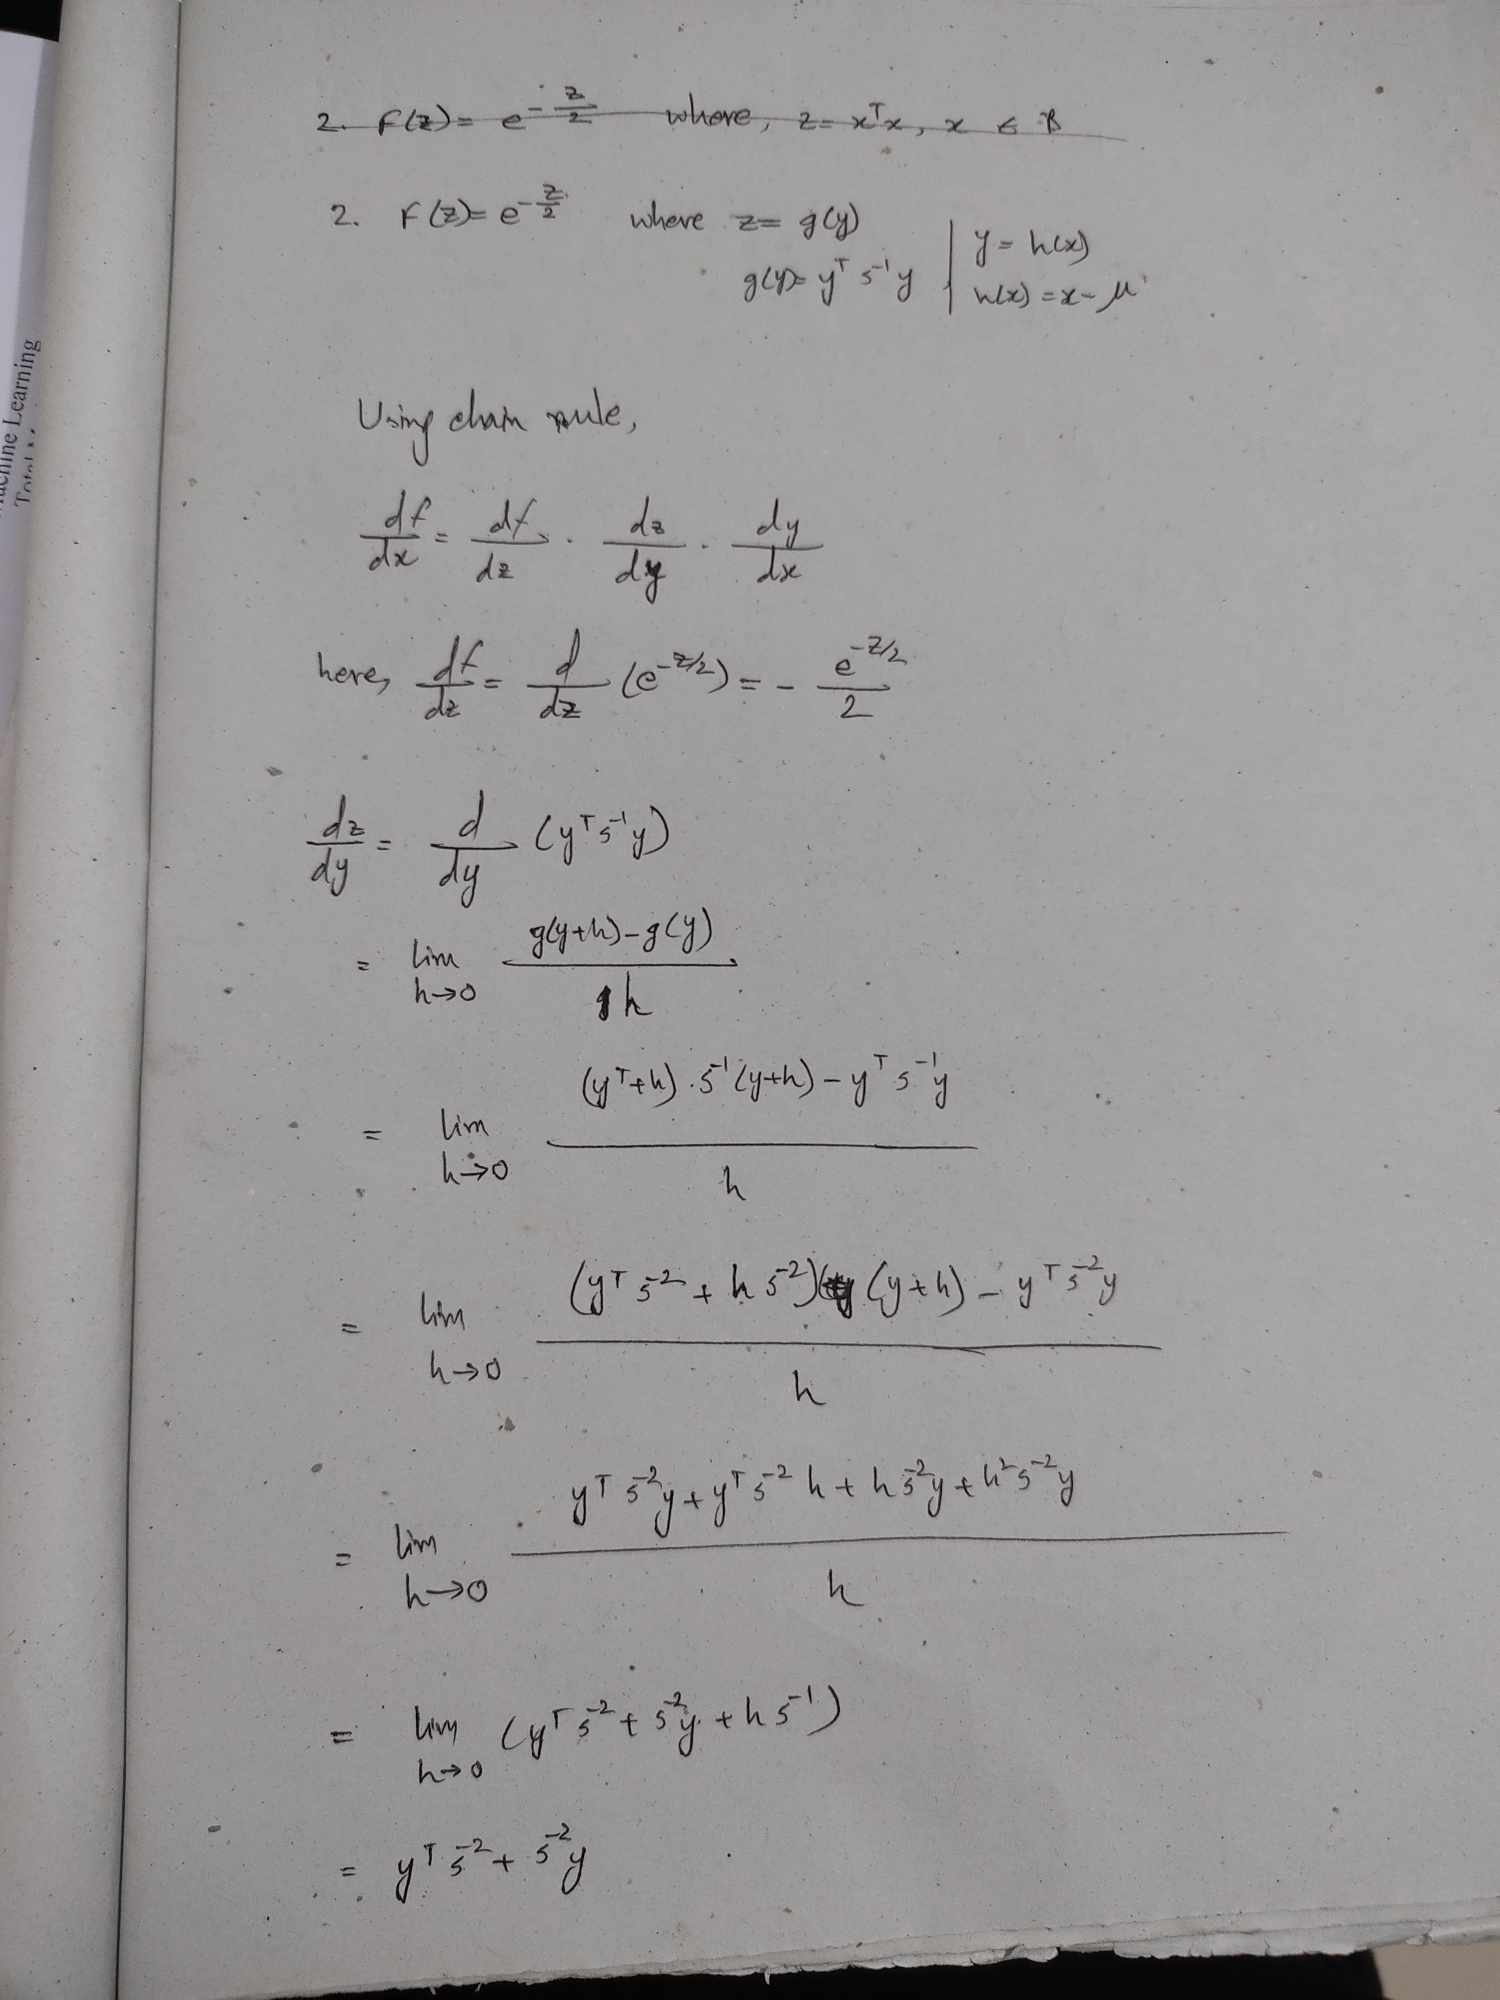 2. F(z) = e^{-z/2} where, z = x^T x, x ∈
2. F(z) = e^{-z/2} where z = g(y)
g(y) = y^T s^{-1} y | y = h(x)
h(x) = x - μ
Using chain rule,
df/dx = df/dz · dz/dy · dy/dx
here, df/dz = d/dz (e^{-z/2}) = - e^{-z/2}/2
dz/dy = d/dy (y^T s^{-1} y)
= lim h→0 g(y+h) - g(y) / h
= lim h→0 (y^T + h) · s^{-1} (y+h) - y^T s^{-1} y / h
= lim h→0 (y^T s^{-2} + h s^{-2}) (y+h) - y^T s^{-2} y / h
= lim h→0 y^T s^{-2} y + y^T s^{-2} h + h s^{-2} y + h^2 s^{-2} y / h
= lim h→0 (y^T s^{-2} + s^{-2} y + h s^{-1})
= y^T s^{-2} + s^{-2} y
Machine Learning